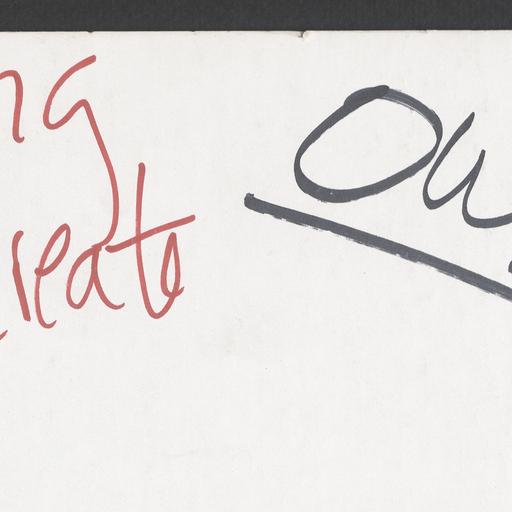 ng
reate
Ow